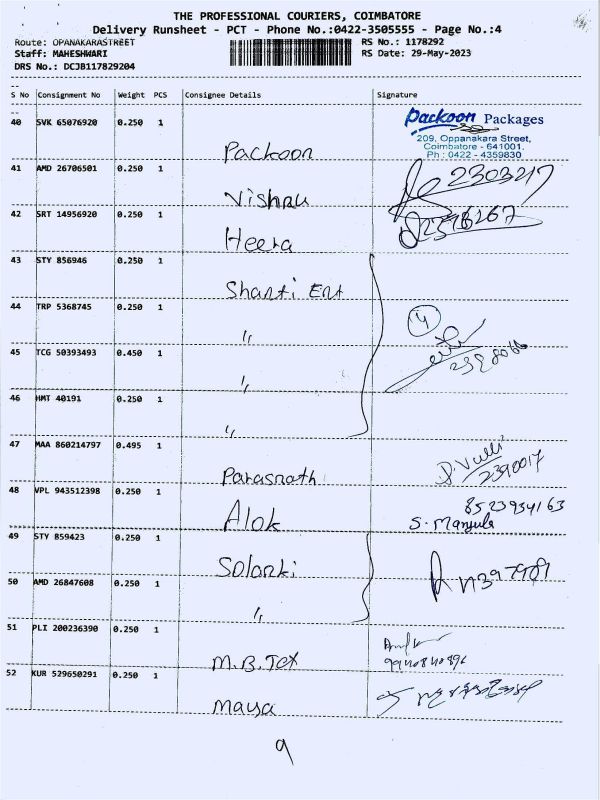 THE PROFESSIONAL COURIERS, COIMBATORE
Delivery Runsheet - PCT - Phone No.:0422-3505555 - Page No.:4
Route: OPANAKARASTREET
RS No.: 1178292
Staff: MAHESHWARI
RS Date: 29-May-2023
DRS No.: DCJB117829204
S No Consignment No Weight PCS Consignee Details Signature
40 SVK 65076920 0.250 1
Packoon Packages
209, Oppanakara Street,
Coimbatore - 641001.
Ph : 0422 - 4359830
Packoon
41 AMD 26706501 0.250 1
2303217
Vishnu
42 SRT 14956920 0.250 1
Heera
43 STY 856946 0.250 1
Shanti Ent
44 TRP 5368745 0.250 1
4
"
45 TCG 50393493 0.450 1
"
46 HMT 40191 0.250 1
"
47 MAA 860214797 0.495 1
D. Valli
2390017
Parasnath
48 VPL 943512398 0.250 1
8523934163
S. Manjula
Alok
49 STY 859423 0.250 1
Solanki
50 AMD 26847608 0.250 1
"
51 PLI 200236390 0.250 1
M.B.Tex
52 KUR 529650291 0.250 1
Maya
9